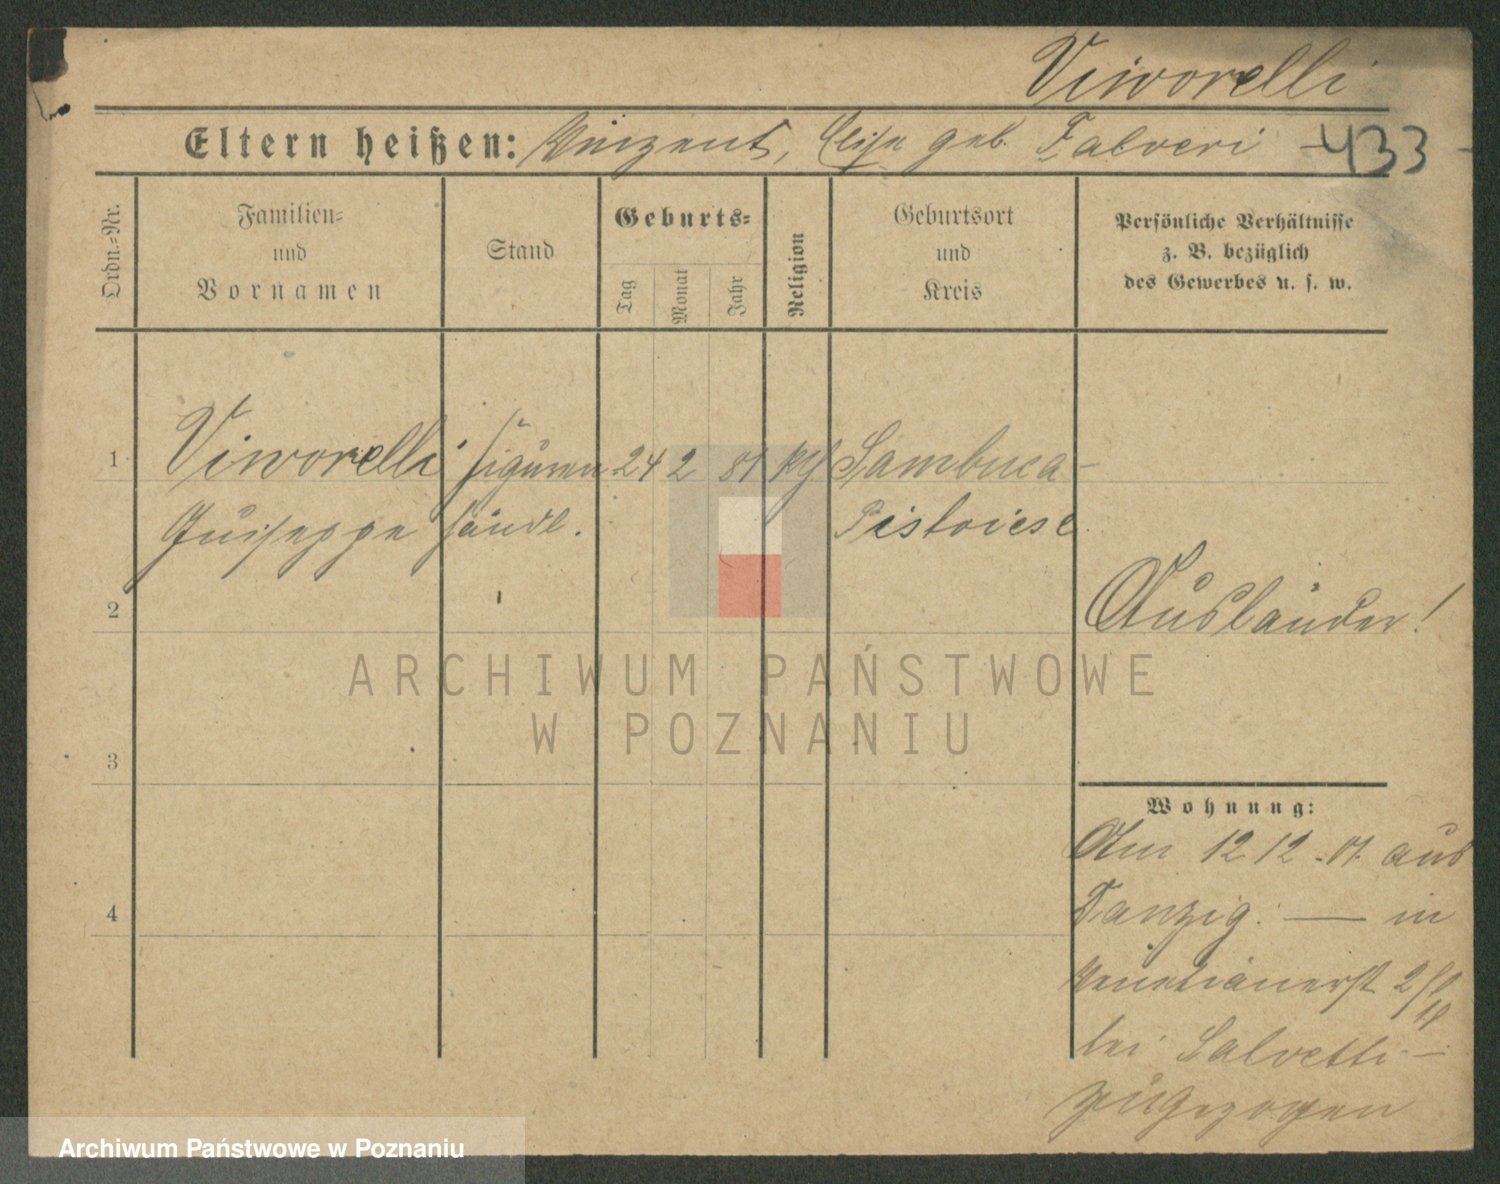 Viworelli
Eltern heißen: Vinzent, Elise geb. Falveri 433
Ordn.=Nr.
Familien=
und
Vornamen
Stand
Geburts=
Tag
Monat
Jahr
Religion
Geburtsort
und
Kreis
Persönliche Verhältnisse
z. B. bezüglich
des Gewerbes u. s. w.
1 Viworelli Figuren 24 2 81 kth Sambuca-
Guiseppe händl. Pistoiese
2
Ausländer!
ARCHIWUM PAŃSTWOWE
W POZNANIU
3
Wohnung:
Am 12 12. 01. aus
4
Danzig. — in
Venetianerst
bei Salvetti —
zugezogen
Archiwum Państwowe w Poznaniu